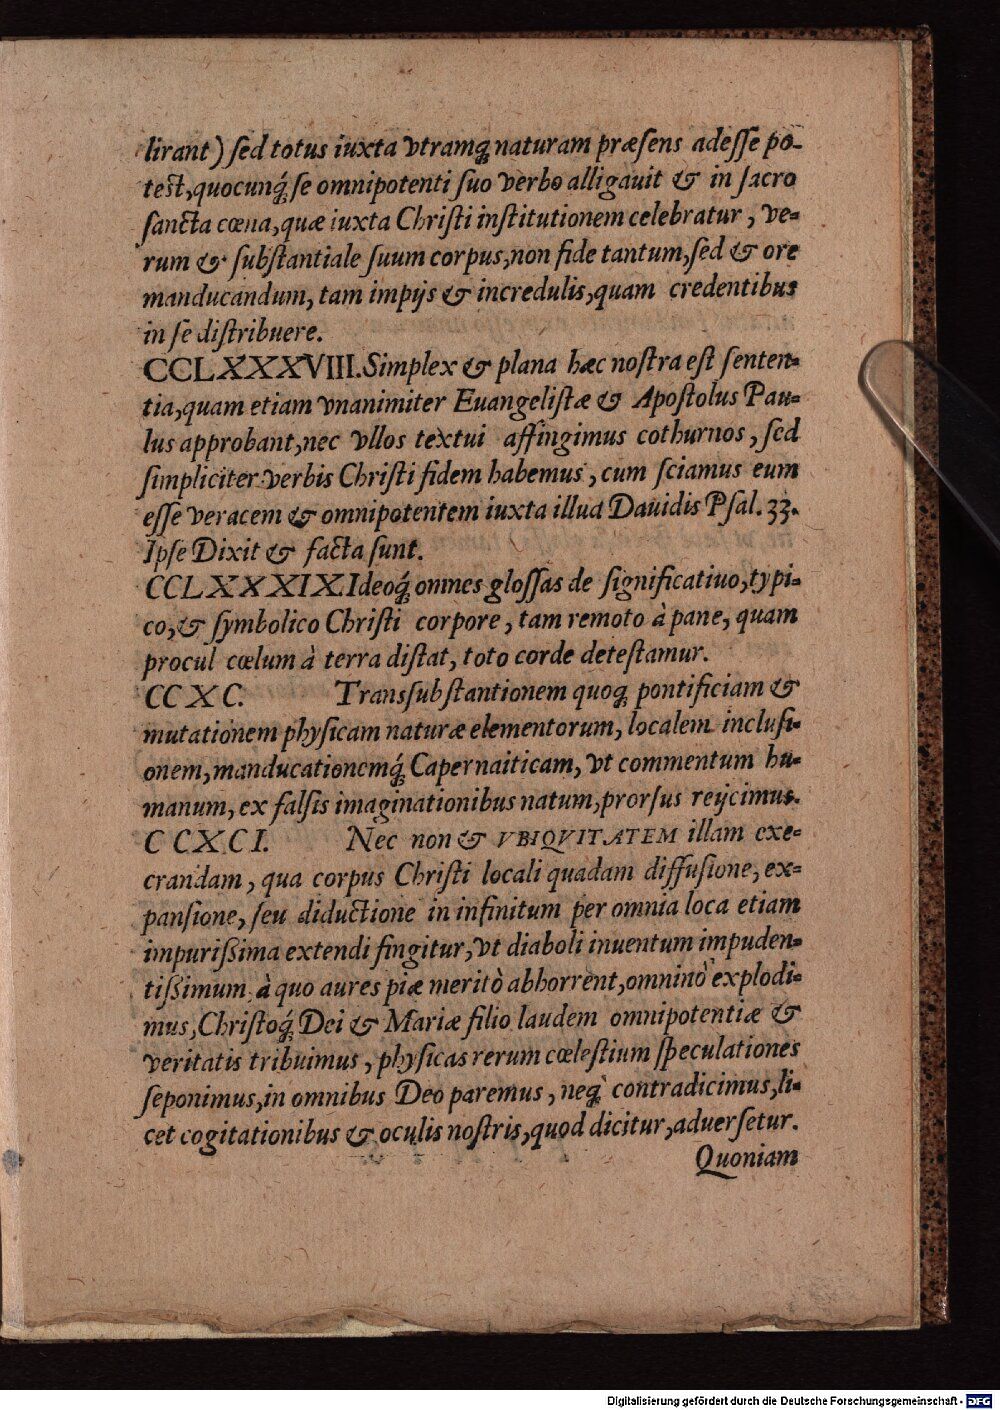 lirant) ſed totus iuxta vtramq́; naturam præſens adeſſe po-
teſt, quocunq́; ſe omnipotenti ſuo verbo alligauit & in ſacro
ſancta cœna, quæ iuxta Chriſti inſtitutionem celebratur, ve-
rum & ſubſtantiale ſuum corpus, non fide tantum, ſed & ore
manducandum, tam impijs & incredulis, quam credentibus
in ſe diſtribuere.
CCLXXXVIII. Simplex & plana hæc noſtra eſt ſenten-
tia, quam etiam vnanimiter Euangeliſtæ & Apoſtolus Pau-
lus approbant, nec vllos textui affingimus cothurnos, ſed
ſimpliciter verbis Chriſti fidem habemus, cum ſciamus eum
eſſe veracem & omnipotentem iuxta illud Dauidis Pſal. 33.
Ipſe Dixit & facta ſunt.
CCLXXXIX. Ideoq́; omnes gloſſas de ſignificatiuo, typi-
co, & ſymbolico Chriſti corpore, tam remoto à pane, quam
procul cœlum à terra diſtat, toto corde deteſtamur.
CCXC. Transſubſtantionem quoq; pontificiam &
mutationem phyſicam naturæ elementorum, localem incluſi-
onem, manducationemq́; Capernaiticam, vt commentum hu-
manum, ex falſis imaginationibus natum, prorſus reijcimus.
CCXCI. Nec non & VBIQVITATEM illam exe-
crandam, qua corpus Chriſti locali quadam diffuſione, ex-
panſione, ſeu diductione in infinitum per omnia loca etiam
impurißima extendi fingitur, vt diaboli inuentum impuden-
tißimum, à quo aures piæ meritò abhorrent, omninò explodi-
mus, Chriſtoq́; Dei & Mariæ filio laudem omnipotentiæ &
veritatis tribuimus, phyſicas rerum cœleſtium ſpeculationes
ſeponimus, in omnibus Deo paremus, neq; contradicimus, li-
cet cogitationibus & oculis noſtris, quod dicitur, aduerſetur.
Quoniam
Digitalisierung gefördert durch die Deutsche Forschungsgemeinschaft - DFG